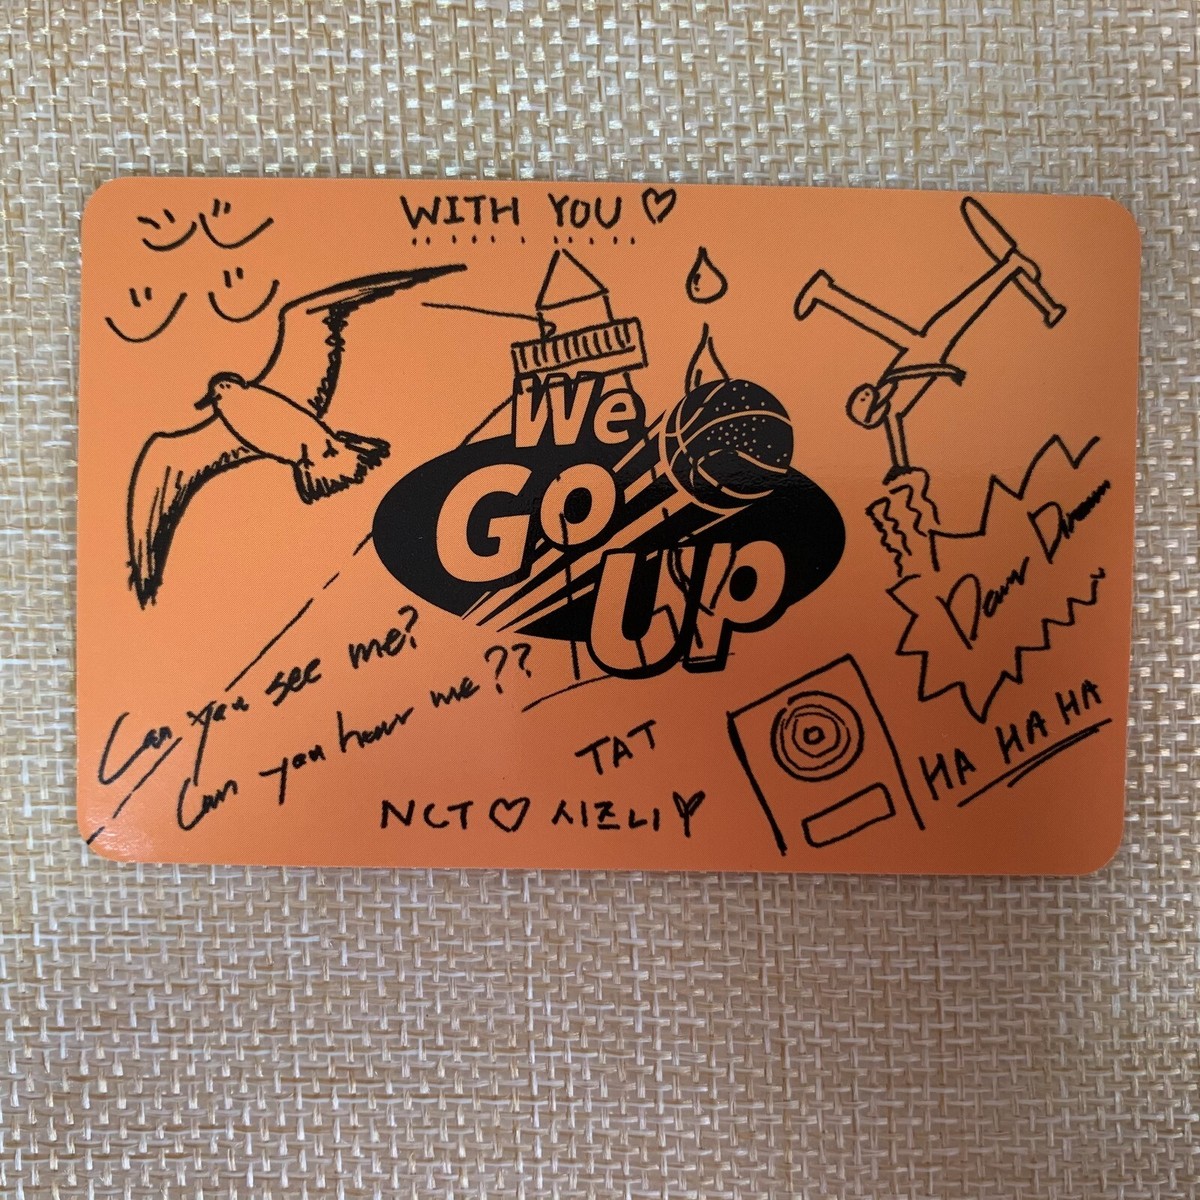 WITH YOU ♡
We
Go
Up
Can you see me?
Can you hear me??
TAT
NCT ♡ 시즈니
HA HA HA